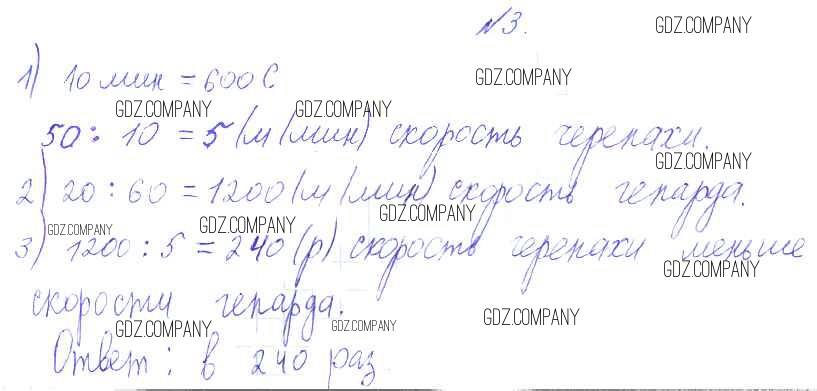 №3. GDZ.COMPANY
1) 10 мин = 600 с GDZ.COMPANY
GDZ.COMPANY GDZ.COMPANY
50 : 10 = 5 (м/мин) скорость черепахи.
GDZ.COMPANY
2) 20 : 60 = 1200 (м/мин) скорость гепарда.
GDZ.COMPANY GDZ.COMPANY GDZ.COMPANY
3) 1200 : 5 = 240 (р) скорость черепахи меньше
GDZ.COMPANY
скорости гепарда.
GDZ.COMPANY GDZ.COMPANY GDZ.COMPANY
Ответ: в 240 раз.